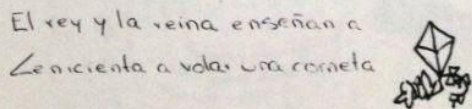 El rey y la reina enseñan a
Cenicienta a volar una corneta